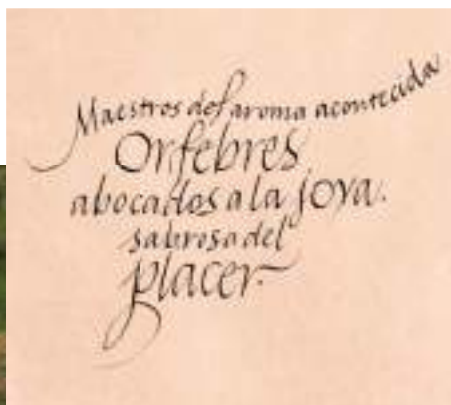 Maestros del aroma acontecida
Orfebres
abocados a la joya.
sabrosa del
placer.